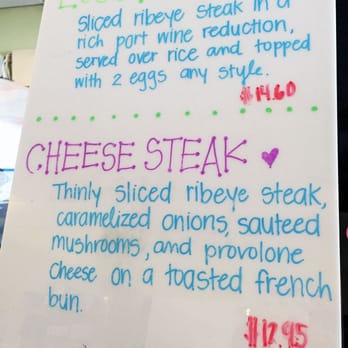 Sliced ribeye steak in a
rich port wine reduction,
served over rice and topped
with 2 eggs any style.
$14.60
CHEESE STEAK
Thinly sliced ribeye steak,
caramelized onions, sauteed
mushrooms, and provolone
cheese on a toasted french
bun.
$12.95